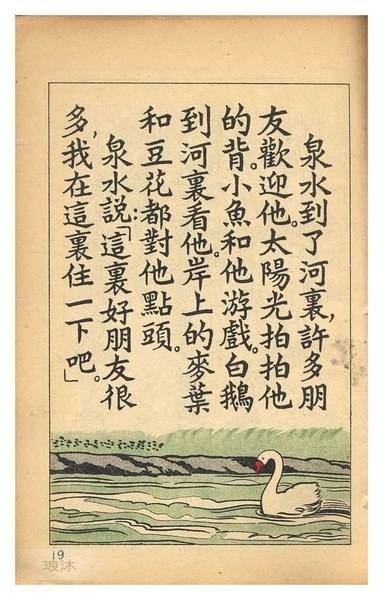 泉水到了河裏，許多朋
友歡迎他。太陽光拍拍他
的背。小魚和他游戲。白鵝
到河裏看他。岸上的麥葉
和豆花都對他點頭。
泉水說：「這裏好朋友很
多，我在這裏住一下吧。」
19
琅沐